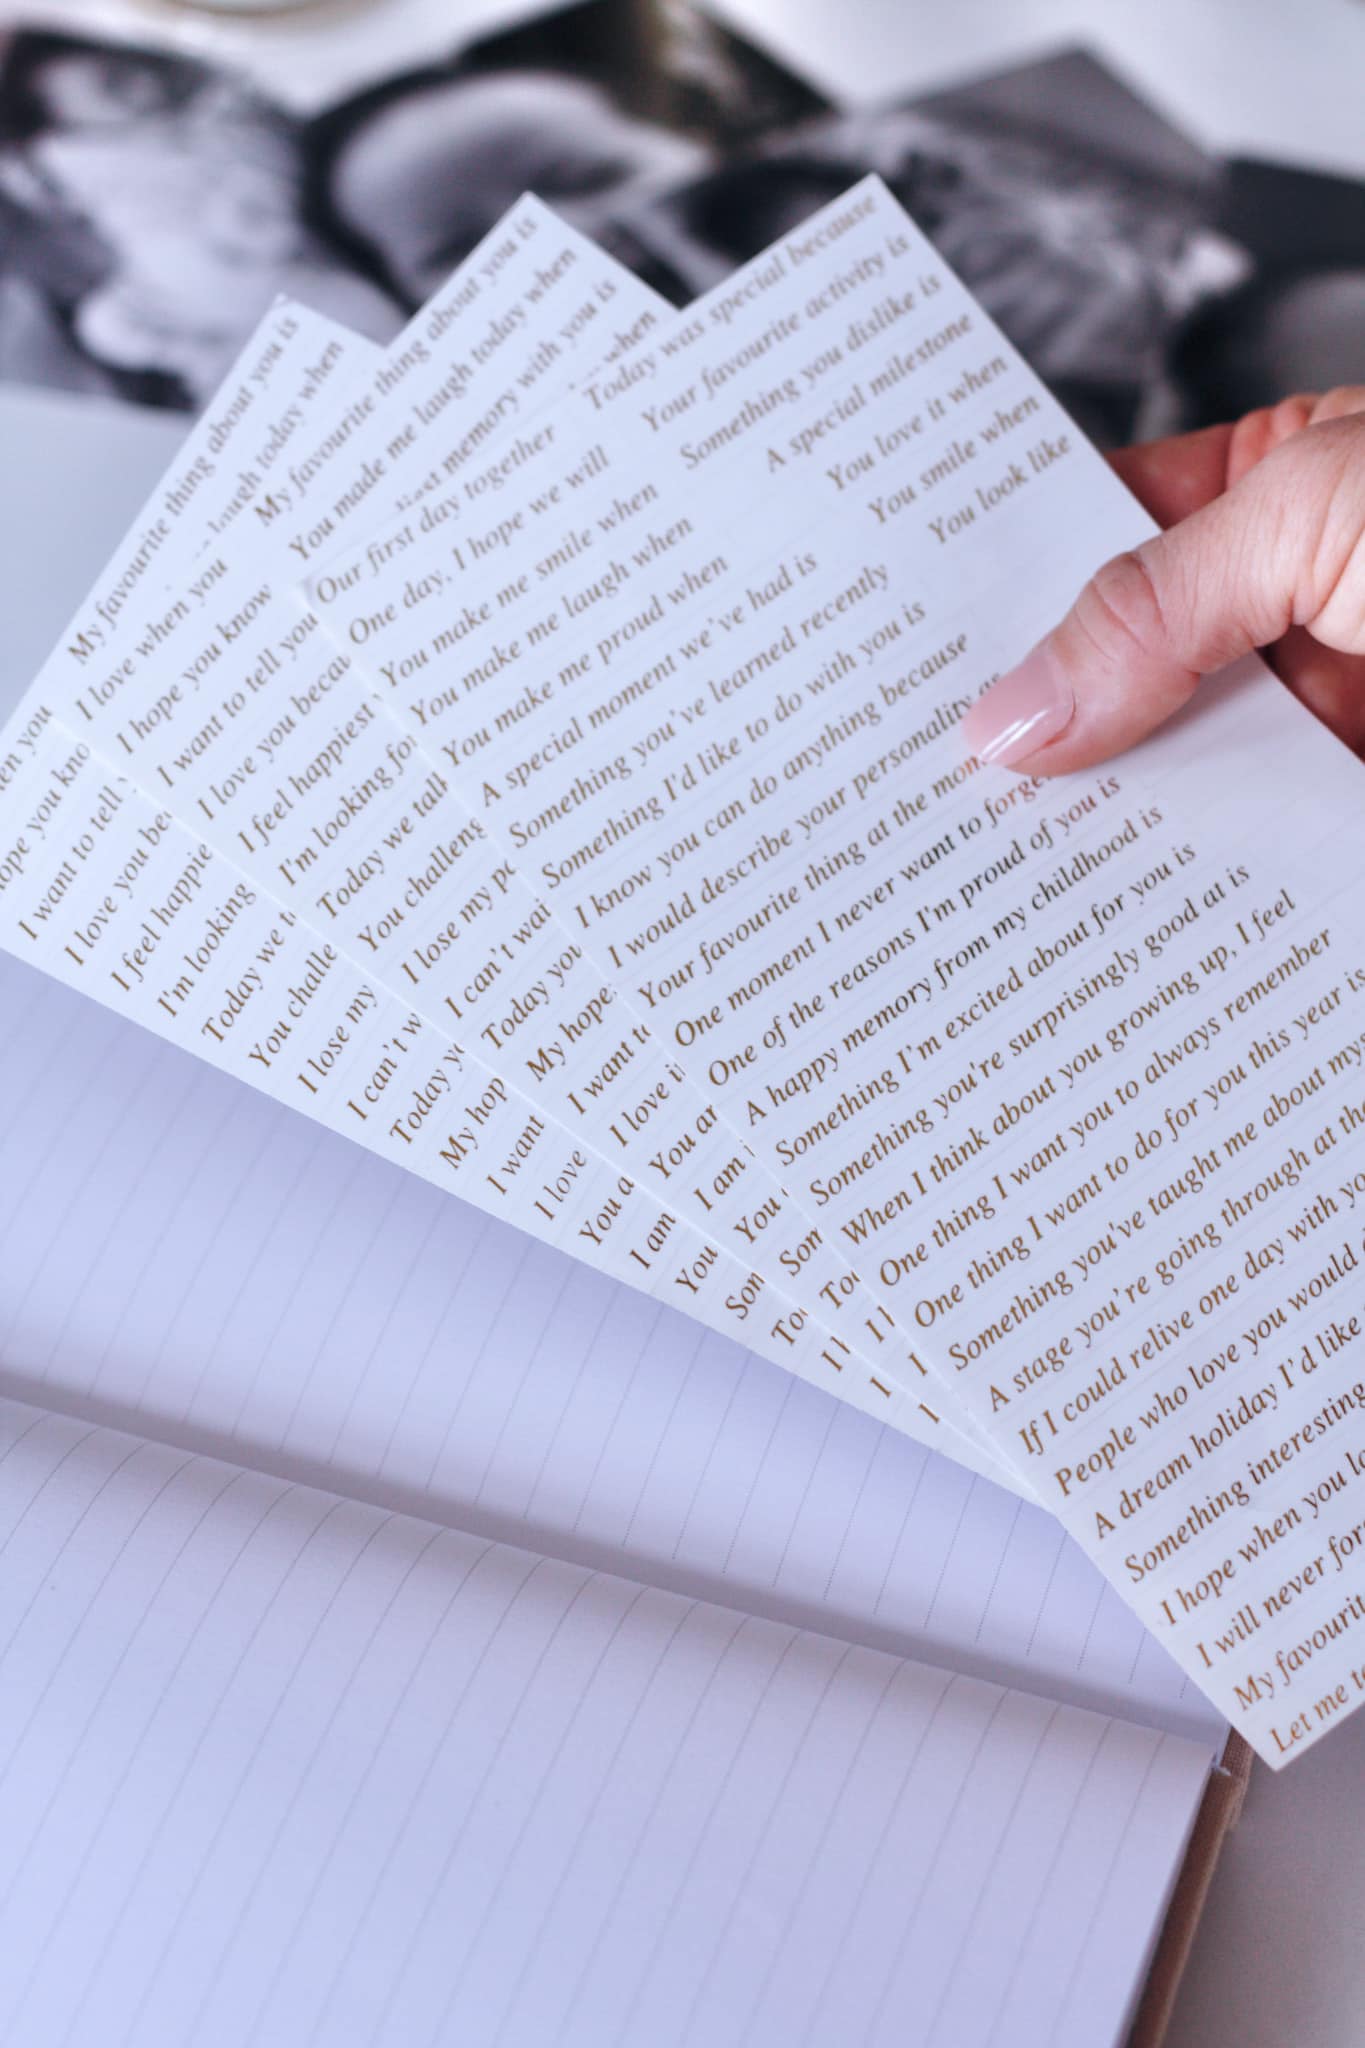 Today was special because
Your favourite activity is
Something you dislike is
A special milestone
You love it when
You smile when
You look like
Our first day together
One day, I hope we will
You make me smile when
You make me laugh when
You make me proud when
A special moment we've had is
Something you've learned recently
Something I'd like to do with you is
I know you can do anything because
I would describe your personality as
Your favourite thing at the mom
One moment I never want to forget
One of the reasons I'm proud of you is
A happy memory from my childhood is
Something I'm excited about for you is
Something you're surprisingly good at is
When I think about you growing up, I feel
One thing I want you to always remember
One thing I want to do for you this year is
Something you've taught me about my
A stage you're going through at the
If I could relive one day with yo
People who love you would
A dream holiday I'd like
Something interesting
I hope when you lo
I will never for
My favourit
Let me t
My favourite thing about you is
You made me laugh today when
memory with you is
when
I love when you
I hope you know
I want to tell you
I love you becau
I feel happiest
I'm looking for
Today we talk
You challeng
I lose my p
I can't wai
Today you
My hope
I want t
I love i
You ar
I am
You
Som
To
I
I
My favourite thing about you is
laugh today when
en you
ope you kno
I want to tell
I love you be
I feel happie
I'm looking
Today we t
You challe
I lose my
I can't w
Today y
My hop
I want
I love
You a
I am
You
Som
To
I
I